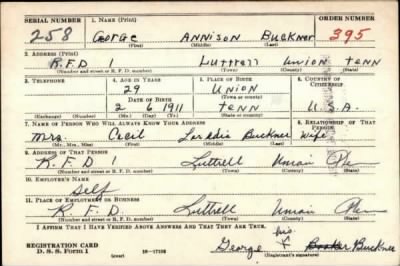 SERIAL NUMBER 1. NAME (Print) ORDER NUMBER
258 George Annison Buckner 395
(First) (Middle) (Last)
2. ADDRESS (Print)
R.F.D 1 Luttrell Union Tenn
(Number and street or R. F. D. number) (Town) (County) (State)
3. TELEPHONE 4. AGE IN YEARS 5. PLACE OF BIRTH 6. COUNTRY OF CITIZENSHIP
29 Union
DATE OF BIRTH (Town or county)
2 6 1911 Tenn U.S.A.
(Exchange) (Number) (Mo.) (Day) (Yr.) (State or country)
7. NAME OF PERSON WHO WILL ALWAYS KNOW YOUR ADDRESS 8. RELATIONSHIP OF THAT PERSON
Mrs. Cecil Buckner Wife
(Mr., Mrs., Miss) (First) (Middle) (Last)
9. ADDRESS OF THAT PERSON
R.F.D 1 Luttrell Union
(Number and street or R. F. D. number) (Town) (County) (State)
10. EMPLOYER'S NAME
Self
11. PLACE OF EMPLOYMENT OR BUSINESS
R.F.D. Luttrell Union
(Number and street or R. F. D. number) (Town) (County) (State)
I AFFIRM THAT I HAVE VERIFIED ABOVE ANSWERS AND THAT THEY ARE TRUE.
his
REGISTRATION CARD George X Buckner
D. S. S. Form 1 (over)